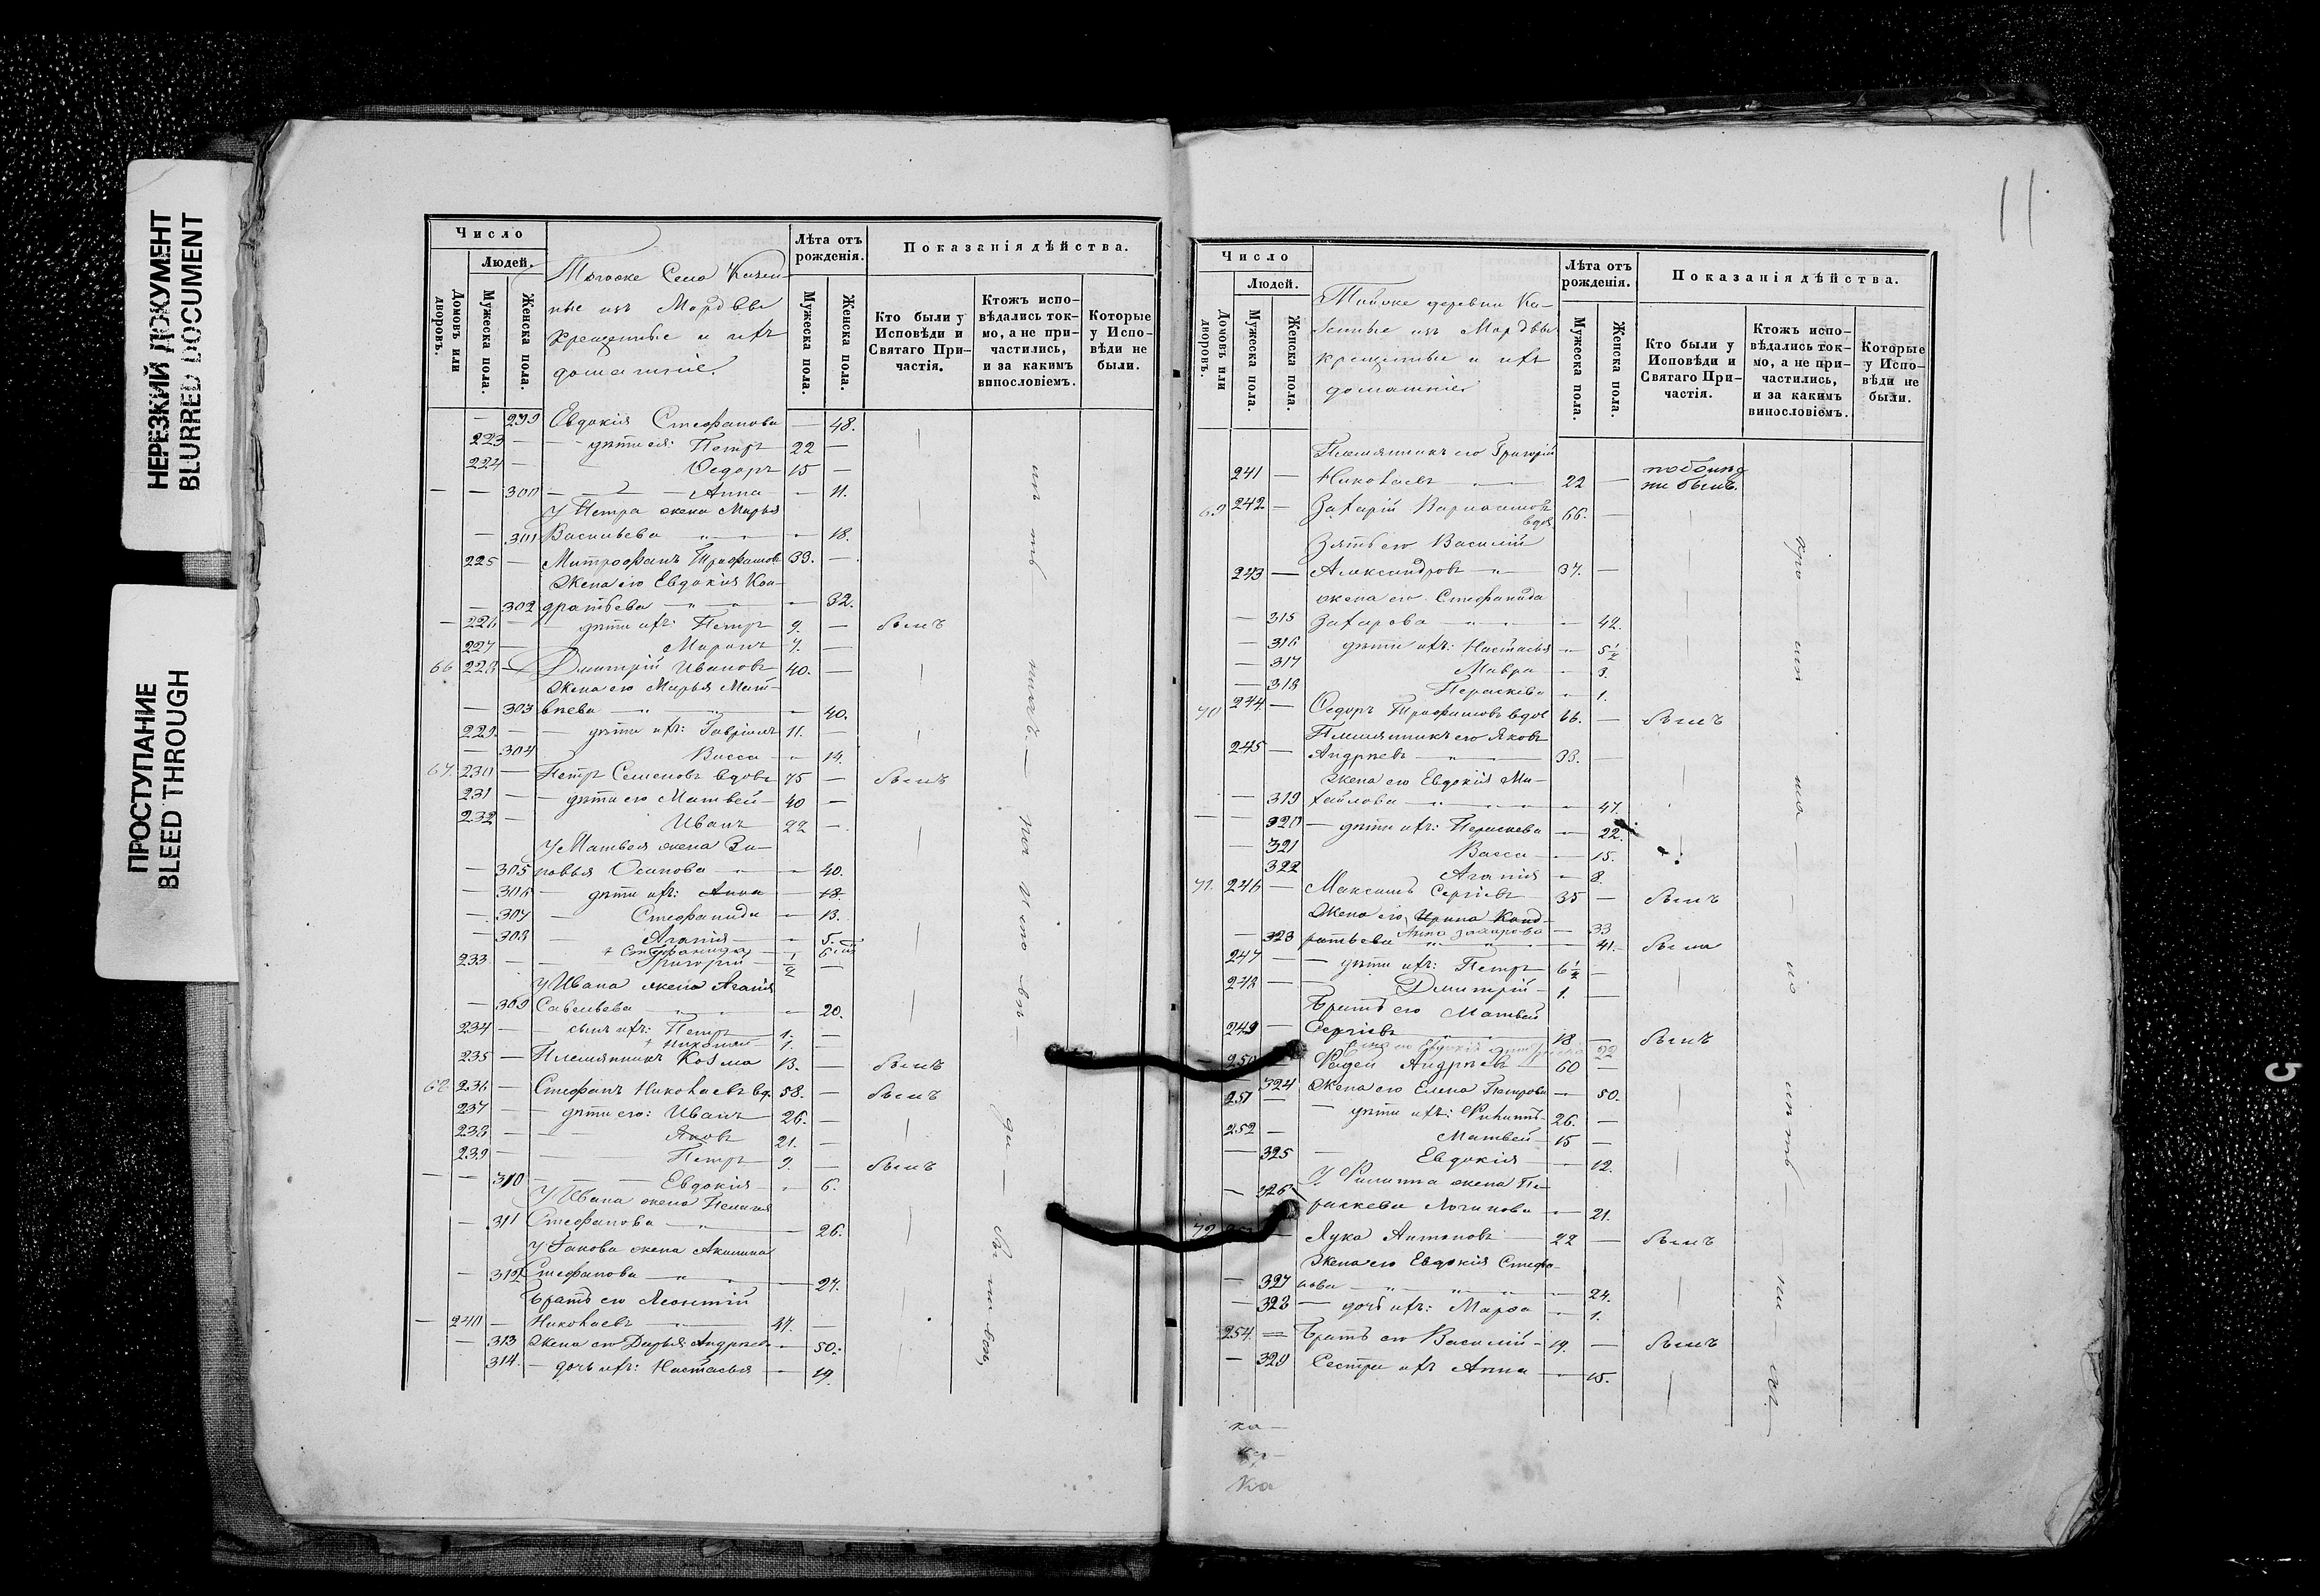 НЕРЕЗКИЙ ДОКУМЕНТ
BLURRED DOCUMENT
ПРОСТУПАНИЕ
BLEED THROUGH
Число
Людей.
Домовъ или дворовъ.
Мужеска пола.
Женска пола.
Тогоже Села Казен-
ные изъ Мордвы
крещеные и ихъ
домашніе.
Лѣта отъ рожденія.
Мужеска пола.
Женска пола.
Показанія дѣйства.
Кто были у Исповѣди и Святаго При-частія.
Ктожъ испо-вѣдались ток-мо, а не при-частились, и за какимъ винословіемъ.
Которые у Испо-вѣди не были.
— 299 Евдокія Стефанова — 48.
223 — дѣти ея: Петръ 22 —
224 — Ѳедоръ 15 —
— — 300 — Анна — 11.
У Петра жена Марья
— 301 Васильева — 18.
225 — Митрофанъ Трофимовъ 33. —
Жена его Евдокія Кон-
— 302 дратьева — 32.
226 — дѣти ихъ: Петръ 9. — былъ
227 — Миронъ 7. —
66 228 — Дмитрій Ивановъ 40. —
Жена его Марья Мат-
— 303 вѣева — 40.
229 — дѣти ихъ: Гавріилъ 11. —
— 304 Васса — 14.
67. 230 — Петръ Семеновъ вдовъ 75 — былъ
231 — дѣти его Матвей 40 —
232 — Иванъ 22 —
У Матвея жена Зи-
— 305 новья Осипова — 40.
— 306 — дѣти ихъ: Анна — 18.
— 307 — Стефанида — 13.
— 308 — Агапія — 5.
+ Стефанида
233 — Григорій 1/2 —
У Ивана жена Агапія
— 309 Савельева — 20.
234 — сынъ ихъ: Петръ 1. —
235 — Племянникъ Козма 13. — былъ
68 236 — Стефанъ Николаевъ вд. 58. — былъ
237 — дѣти его: Иванъ 26. —
238 — Яковъ 21. —
239 — Петръ 9. — былъ
— — 310 — Евдокія — 6.
У Ивана жена Пелагія
— 311 Стефанова — 26.
У Якова жена Акилина
— 312 Стефанова — 24.
Братъ его Леонтій
— 240 — Николаевъ 47. —
— 313 Жена его Дарья Андреева — 50.
314. — дочь ихъ: Настасья — 19.
11
Число
Людей.
Домовъ или дворовъ.
Мужеска пола.
Женска пола.
Тойже деревни Ка-
зенные изъ Мордвы
крещеные и ихъ
домашніе
Лѣта отъ рожденія.
Мужеска пола.
Женска пола.
Показанія дѣйства.
Кто были у Исповѣди и Святаго При-частія.
Ктожъ испо-вѣдались ток-мо, а не при-частились, и за какимъ винословіемъ.
Которые у Испо-вѣди не были.
Племянникъ его Григорій
241 — Николаевъ 22 —
не былъ.
69 242 — Захарій вдов 66. —
Зять его Василій
243 — Александровъ 37. —
жена его Стефанида
— 315 Захарова — 42.
— 316 дѣти ихъ: Настасья — 5 1/2
— 317 Мавра — 3.
— 318 Параскева — 1.
70 244 — Ѳедоръ Трофимовъ вдов 66. — былъ
Племянникъ его Яковъ
245 — Андреевъ 33. —
Жена его Евдокія Ми-
— 319 хайлова — 47.
— 320 — дѣти ихъ: Параскева — 22.
— 321 Васса — 15.
322 Агапія — 8.
71. 246 — Максимъ Сергіевъ 35 — былъ
Жена его Ирина Конд-
Анна Захарова — 33
— 323 ратьева — 41. была
247 — дѣти ихъ: Петръ 6 1/2 —
248 — Дмитрій 1. —
Братъ его Матвей
249 — Сергіевъ 18 — былъ
250 Фадей Андреевъ 60 —
324 Жена его Елена Петрова — 50.
251 — дѣти ихъ: Филиппъ 26. —
252 — Матвей 15 —
— 325 Евдокія — 12.
У Филиппа жена Па-
— 326 раскева Логинова — 21.
72 Лука Антоновъ 22 — былъ
Жена его Евдокія Стефа-
— 327 нова — 24.
— 328 — дочь ихъ: Марѳа — 1.
254. — Братъ его Василій 19. — былъ
— 329 Сестра ихъ Анна — 15.
ка—
Ка
5